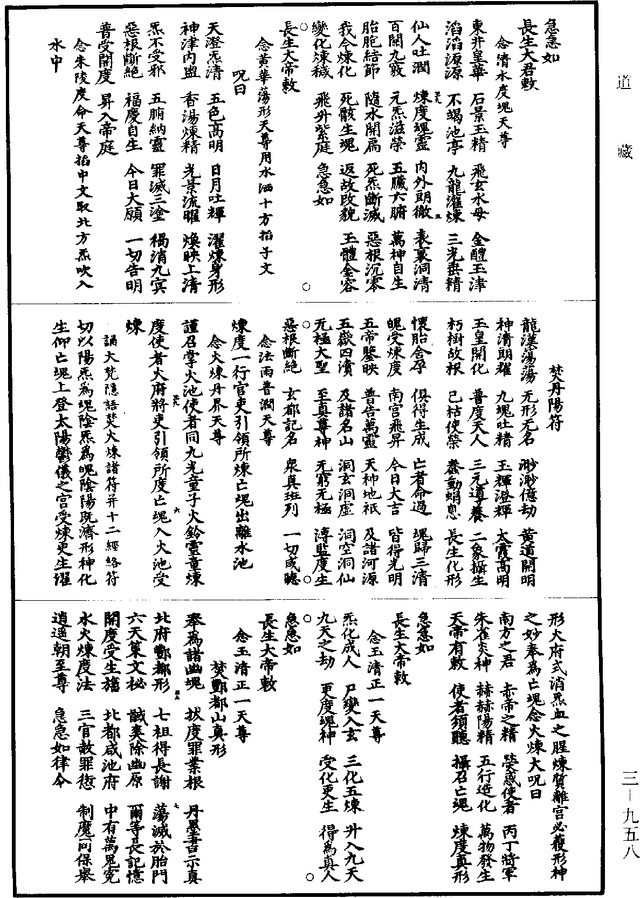 道藏
急急如
長生大君敕
念清水度魂天尊
東井皇華　石景玉精　飛玄水母　金醴玉津
滔滔源源　不竭池亭　九龍灌煉　三光垂精
仙人吐潤　煉度魂靈　內外朗徹　表裏洞清
百關九竅　元炁滋榮　五臟六腑　萬神自生
胎胞結節　隨水開扃　死炁斷滅　惡根沉零
我今煉化　死骸生魂　返故改貌　玉體金容
變化煉穢　飛升紫庭　急急如
長生大帝敕
念黃華蕩形天尊用水洒十方掐子文
呪曰
天澄炁清　五色高明　日月吐輝　灌煉身形
神津內盥　香湯煉精　光景流曜　煥映上清
炁不受邪　五腑納靈　罪滅三塗　禍消九冥
惡根斷絕　福慶自生　今日大願　一切告明
普受開度　昇入帝庭
念朱陵度命天尊掐中文取北方炁吹入
水中
焚丹陽符
龍漢蕩蕩　无形无名　渺渺億劫　黃道開明
神清朗耀　九魂吐精　玉輝澄輝　太霞高明
玉皇開化　普度天人　三元導養　二象攝生
朽樹故根　已枯使榮　蠢動蜎息　長生化形
懷胎含孕　俱得生成　亡者命過　魂歸三清
魄受煉度　南宮飛昇　今日大吉　皆得光明
五帝鑒映　普告萬靈　天神地祇　及諸河源
五嶽四瀆　及諸名山　洞玄洞虛　洞空洞仙
无極大聖　至真尊神　无窮无極　溥監度生
惡根斷絕　玄都記名　衆真班列　一切咸聽
念法雨普潤天尊
煉度一行官吏引領所煉亡魂出離水池
念火煉丹界天尊
謹召掌火池使者同九光童子火鈴靈童煉
度使者火府將吏引領所度亡魂入火池受
煉
誦大梵隱語焚火煉諸符并十二經絡符
切以陽炁爲魂陰炁爲魄陰陽既濟形神化
生仰亡魂上登太陽鬱儀之宮受煉更生濯
形火府式消炁血之腥煉質離宮必獲形神
之妙奉爲亡魂念火煉大呪曰
南方之君　赤帝之精　熒惑使者　丙丁將軍
朱雀炎神　赫赫陽精　五行造化　萬物發生
天帝有敕　使者須聽　攝召亡魂　煉度真形
急急如
長生大帝敕
念玉清正一天尊
炁化成人　尸變入玄　三化五煉　升入九天
九天之劫　更度魂神　受化更生　得爲真人
急急如
長生大帝敕
念玉清正一天尊
焚酆都山真形
奉爲諸幽魂　拔度罪業根　丹墨書示真
北府酆都形　七祖得長謝　蕩滅於胎門
六天策文秘　誠奏除幽原　爾等長記憶
開度受生擔　北都咸池府　中有萬鬼宛
水火煉度法　三官赦罪愆　制魔而保舉
逍遥朝至尊　急急如律令
三—九五八